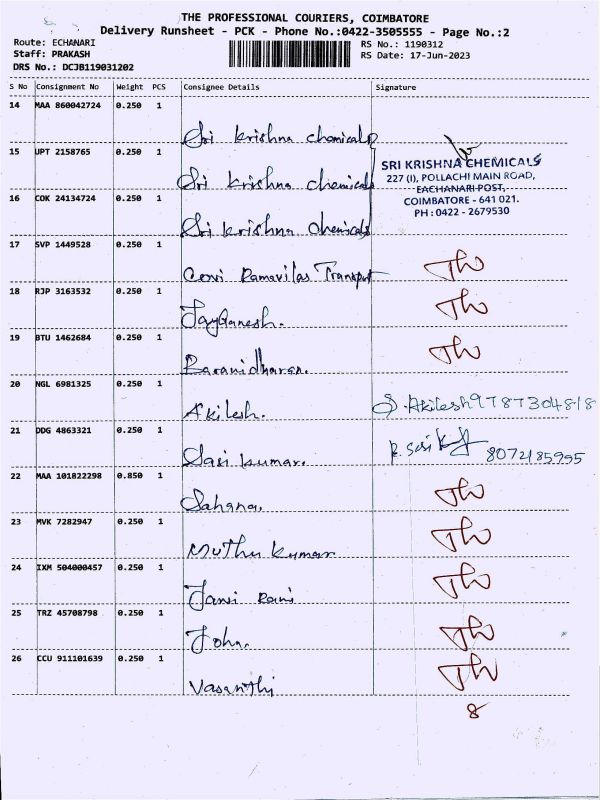 THE PROFESSIONAL COURIERS, COIMBATORE
Delivery Runsheet - PCK - Phone No.:0422-3505555 - Page No.:2
Route: ECHANARI RS No.: 1190312
Staff: PRAKASH RS Date: 17-Jun-2023
DRS No.: DCJB119031202
S No Consignment No Weight PCS Consignee Details Signature
14 MAA 860042724 0.250 1
Sri Krishna chemicals
15 UPT 2158765 0.250 1
Sri Krishna chemicals
SRI KRISHNA CHEMICALS
227 (I), POLLACHI MAIN ROAD,
EACHANARI POST,
COIMBATORE - 641 021.
PH : 0422 - 2679530
16 COK 24134724 0.250 1
Sri Krishna Chemicals
17 SVP 1449528 0.250 1
Ramavilas Transport
18 RJP 3163532 0.250 1
JayGanesh.
19 BTU 1462684 0.250 1
Baranidharan.
20 NGL 6981325 0.250 1
Akilesh. S. Akilesh 9787304818
21 DDG 4863321 0.250 1
Sasi kumar. 8072185995
22 MAA 101822298 0.850 1
Sahana.
23 MVK 7282947 0.250 1
Muthu Kumar
24 IXM 504000457 0.250 1
25 TRZ 45708798 0.250 1
John.
26 CCU 911101639 0.250 1
Vasanthi
8